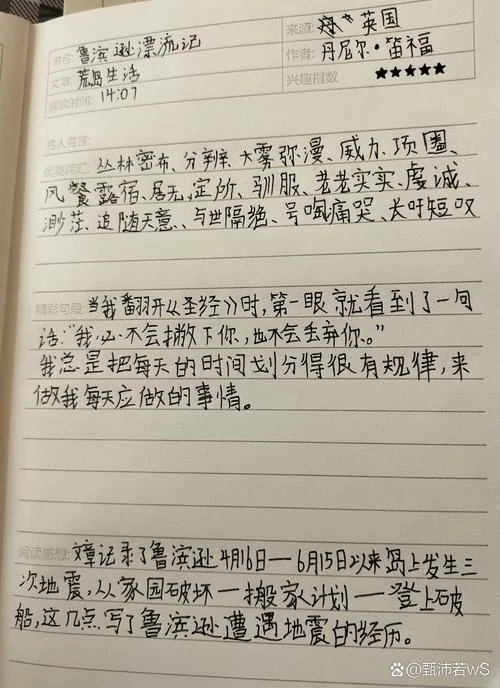 书名: 鲁滨逊漂流记
来源: 英国
文章: 荒岛生活
作者: 丹尼尔·笛福
阅读时间: 14:07
兴趣指数 ★★★★★
名人名言:
优美词汇: 丛林密布、分辨、大雾弥漫、威力、项圈、
风餐露宿、居无定所、驯服、老老实实、虔诚、
渺茫、追随天意、与世隔绝、号啕痛哭、长吁短叹
精彩句段: 当我翻开《圣经》时,第一眼就看到了一句
话:“我必不会撇下你,也不会丢弃你。”
我总是把每天的时间划分得很有规律,来
做我每天应做的事情。
阅读感想: 文章记录了鲁滨逊4月16日—6月15日以来岛上发生三
次地震,从家园破坏—搬家计划—登上破
船,这几点写了鲁滨逊遭遇地震的经历。
@甄沛若wS